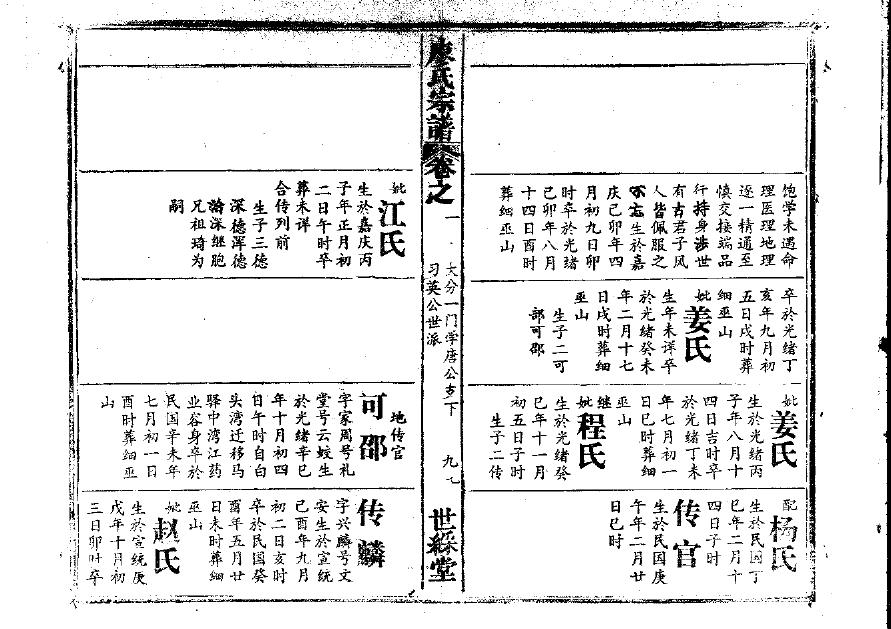 饱学未遇命
理医理地理
逐一精通至
慎交接端品
行持身涉世
有古君子风
人皆佩服之
不忘生於嘉
庆己卯年四
月初九日卯
时卒於光绪
己卯年八月
十四日酉时
葬细巫山
卒於光绪丁
亥年九月初
五日戌时葬
细巫山
妣姜氏
生年未详卒
於光绪癸未
年二月十七
日戌时葬细
巫山
生子二可
部可邵
妣姜氏
生於光绪丙
子年八月十
四日吉时卒
於光绪丁未
年七月初一
日巳时葬细
巫山
继妣程氏
生於光绪癸
巳年十一月
初五日子时
生子二传
配杨氏
生於民囯丁
巳年二月十
四日子时
传官
生於民国庚
午年二月廿
日巳时
廖氏宗谱卷之一
大分一门学唐公支下
习英公世派
世綵堂
妣江氏
生於嘉庆丙
子年正月初
二日午时卒
葬未详
合传列前
生子三德
深德浑德
瀚深继胞
兄祖琦为
嗣
地传官
可邵
字家周号礼
堂号云蛟生
於光绪辛巳
年十月初四
日午时自白
头湾迁移马
驿中湾江药
业谷身卒於
民国辛未年
七月初一日
酉时葬细巫
山
传麟
字兴麟号文
安生於宣统
己酉年九月
初二日亥时
卒於民国癸
酉年五月廿
日未时葬细
巫山
妣赵氏
生於宣统庚
戌年十月初
三日卯时卒